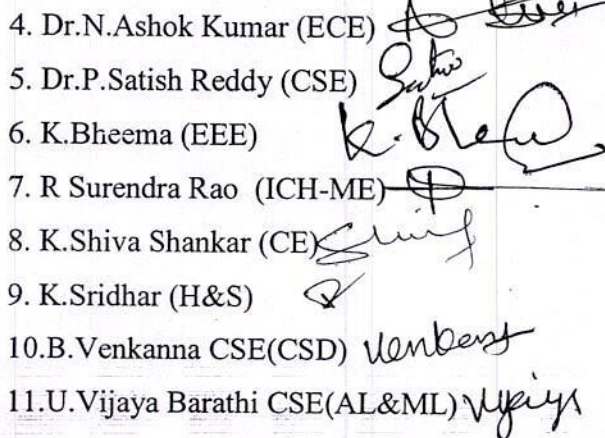 4. Dr.N.Ashok Kumar (ECE)
5. Dr.P.Satish Reddy (CSE)
6. K.Bheema (EEE) K. Bheema
7. R Surendra Rao (ICH-ME)
8. K.Shiva Shankar (CE)
9. K.Sridhar (H&S)
10.B.Venkanna CSE(CSD)
11.U.Vijaya Barathi CSE(AL&ML)